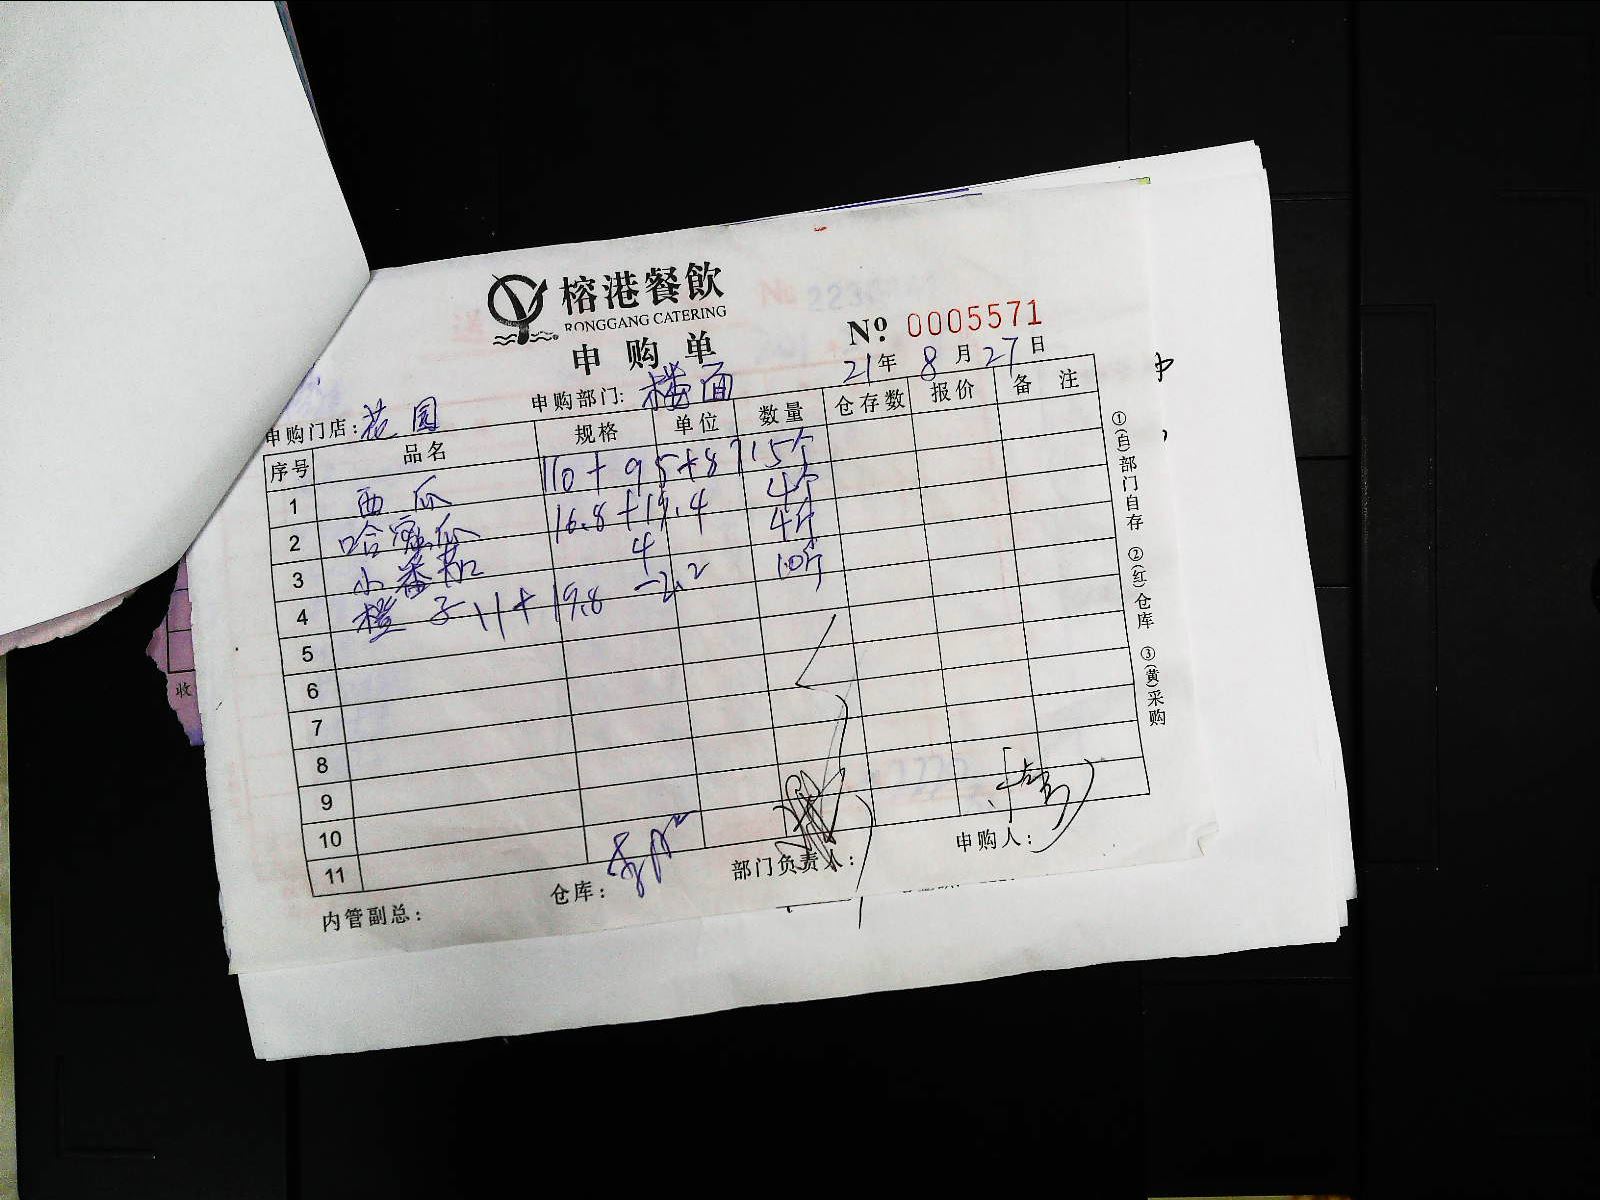 榕港餐飲
RONGGANG CATERING
申购单
№ 0005571
21年 8月 27日
申购门店: 花园 申购部门: 楼面
序号 品名 规格 单位 数量 仓存数 报价 备注
1 西瓜 110+95+87 15个
2 哈密瓜 16.8+19.4 4个
3 小番茄 4 4斤
4 橙子 11+19.8-2.2 10斤
5
6
7
8
9
10
11
内管副总: 仓库: 部门负责人: 申购人:
①(白)部门自存 ②(红)仓库 ③(黄)采购
收